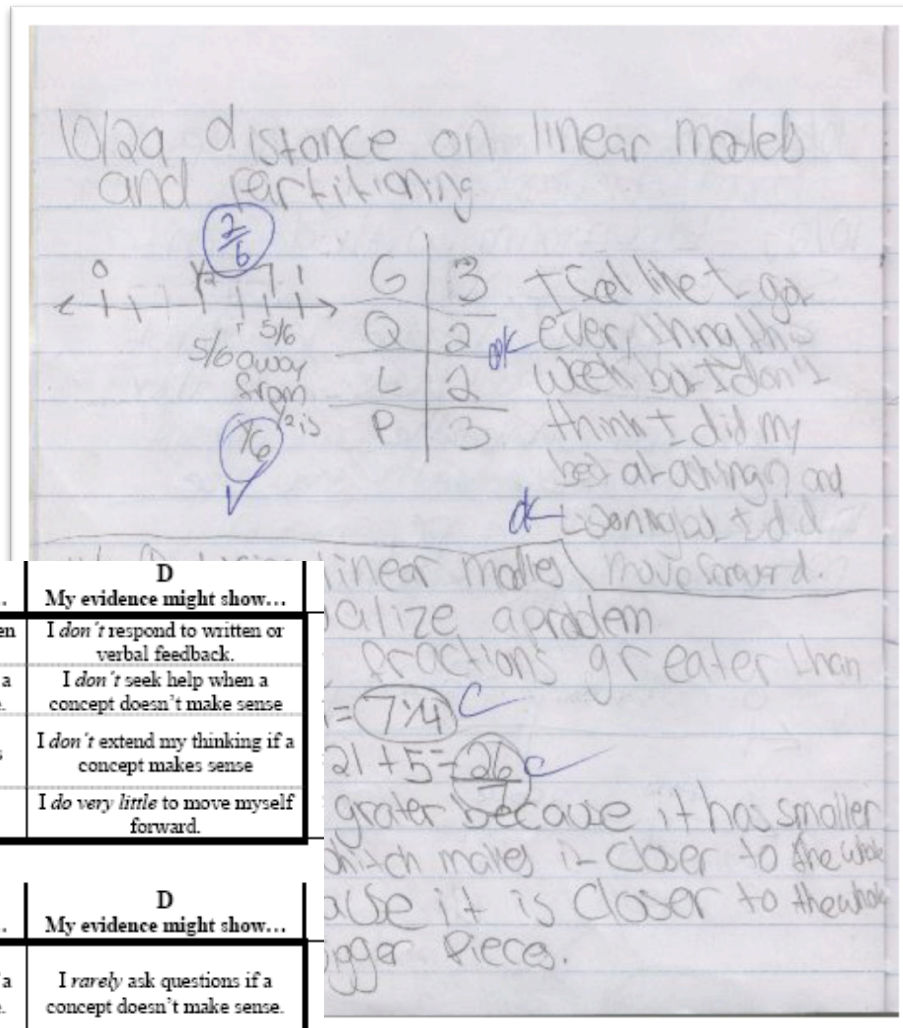 10/29 distance on linear models
and Partitioning
2/6
0 1/2 1
5/6
5/6 away
from
1/2 is
G 3
Q 2
L 2
P 3
I feel like I got
ok everything this
week but I don't
think I did my
best at asking and
ok I did
linear
move forward.
alize a problem
fractions greater than
= 7 1/4 C
21 + 5 = 26/7 C
grater because it has smaller
makes it closer to the whole
it is closer to the whole
Pieces.
D
My evidence might show…
I don't respond to written or
verbal feedback.
I don't seek help when a
concept doesn't make sense
I don't extend my thinking if a
concept makes sense
I do very little to move myself
forward.
D
My evidence might show…
I rarely ask questions if a
concept doesn't make sense.